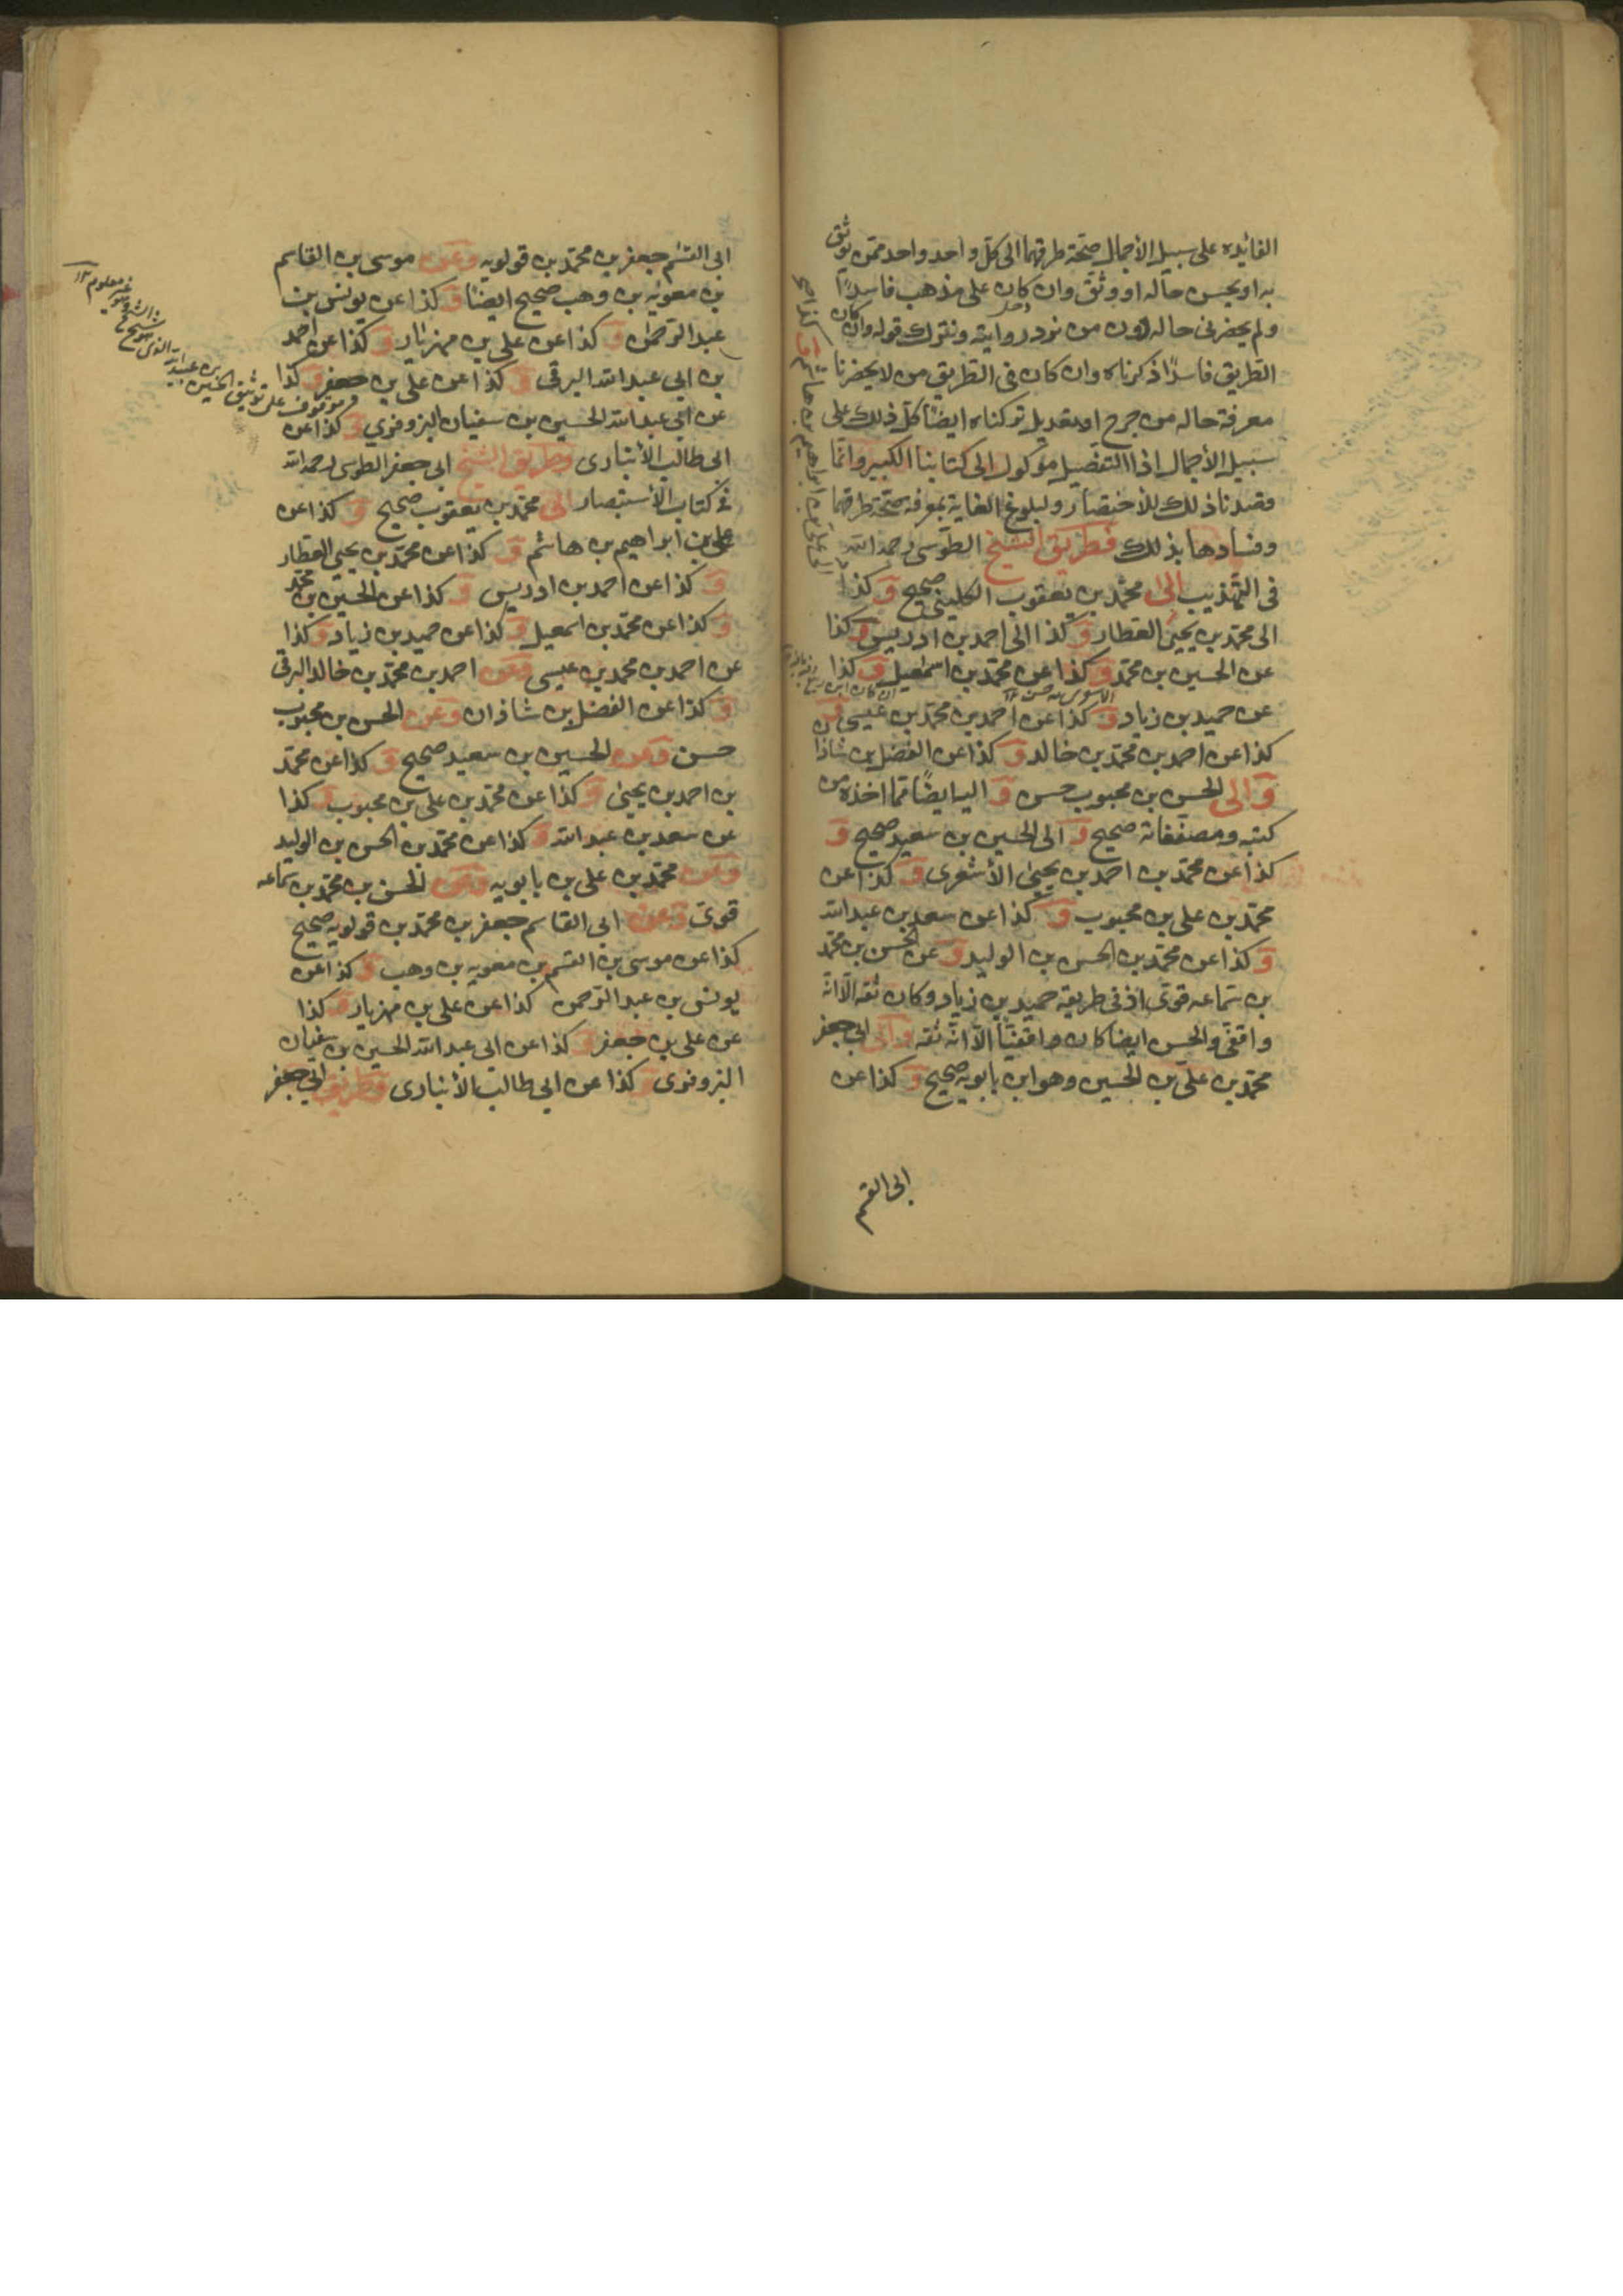 الفائده على سبيل الأجمال صحّة طرقهما الى كلّ واحد واحد ممّن يوثق
به او يحسن حاله او وثّق وان كان على مذهب فاسدًا
ولم يحضرنى حاله دون من نردد روايته ونترك قوله وان كان
الطريق فاسدًا ذكرناه وان كان فى الطريق من لا يحضرنا
معرفة حاله من جرح او تعديل تركناه ايضًا كلّ ذلك على
سبيل الأجمال اذا التفصيل موكول الى كتابنا الكبير وانّما
وقصدنا ذلك للأختصار ولبلوغ الغاية بمعرفة صحّة طرقهما
وفسادها بذلك فطريق الشيخ الطوسى رحمه الله
فى التهذيب الى محمّد بن يعقوب الكلينى صحيح وَ كذا
الى محمّد بن يحيى العطار وَ كذا الى احمد بن ادريس وَ كذا
عن الحسين بن محمّد وَ كذا عن محمّد بن اسمعيل وَ كذا
عن حميد بن زياد وَ كذا عن احمد بن محمّد بن عيسى وَ
كذا عن احمد بن محمّد بن خالد وَ كذا عن الفضل بن شاذا
وَ الى الحسن بن محبوب حسن وَ اليه ايضًا ممّا اخذه من
كتبه ومصنّفاته صحيح وَ الى الحسين بن سعيد صحيح وَ
كذا عن محمّد بن احمد بن يحيى الأشعرى وَ كذا عن
محمّد بن على بن محبوب وَ كذا عن سعد بن عبد الله
وَ كذا عن محمّد بن الحسن بن الوليد وَ عن الحسن بن محمّد
بن سماعه قوىّ اذ فى طريقه حميد بن زياد وكان ثقه الّا انّه
واقفىّ والحسن ايضا كان واقفيًّا الّا انّه ثقه وَ الى ابى جعفر
محمّد بن علىّ بن الحسين وهو ابن بابويه صحيح وَ كذا عن
ابى القسم
كذا عن
على بن ابراهيم بن هاشم
ابى القسم جعفر بن محمّد بن قولويه وَ عن موسى بن القاسم
بن معويه بن وهب صحيح ايضًا وَ كذا عن يونس بن
عبد الرّحمن وَ كذا عن على بن مهزيار وَ كذا عن احمد
بن ابى عبد الله البرقى وَ كذا عن على بن جعفر وَ كذا
عن ابى عبد الله الحسين بن سفيان البزوفرى وَ كذا عن
ابى طالب الأنبارى وطريق الشيخ ابى جعفر الطوسى رحمه الله
فى كتاب الأستبصار الى محمّد بن يعقوب صحيح وَ كذا عن
على بن ابراهيم بن هاشم وَ كذا عن محمّد بن يحيى العطار
وَ كذا عن احمد بن ادريس وَ كذا عن الحسين بن محمّد
وَ كذا عن محمّد بن اسمعيل وَ كذا عن حميد بن زياد وَ كذا
عن احمد بن محمد بن عيسى وَ عن احمد بن محمّد بن خالد البرقى
وَ كذا عن الفضل بن شاذان وَ عن الحسن بن محبوب
حسن وَ عن الحسين بن سعيد صحيح وَ كذا عن محمّد
بن احمد بن يحيى وَ كذا عن محمّد بن على بن محبوب وَ كذا
عن سعد بن عبد الله وَ كذا عن محمّد بن الحسن بن الوليد
وَ عن محمّد بن على بن بابويه وَ عن الحسن بن محمّد بن سماعه
قوىّ وَ عن ابى القاسم جعفر بن محمّد بن قولويه صحيح
كذا عن موسى بن القسم بن معويه بن وهب وَ كذا عن
يونس بن عبد الرّحمن كذا عن على بن مهزيار وَ كذا
عن على بن جعفر وَ كذا عن ابى عبد الله الحسين بن سفيان
البزوفرى وَ كذا عن ابى طالب الأنبارى وَ طريق ابى جعفر
موقوف على توثيق الحسين بن عبيد الله الذى هو شيخ
غير معلوم ١٢